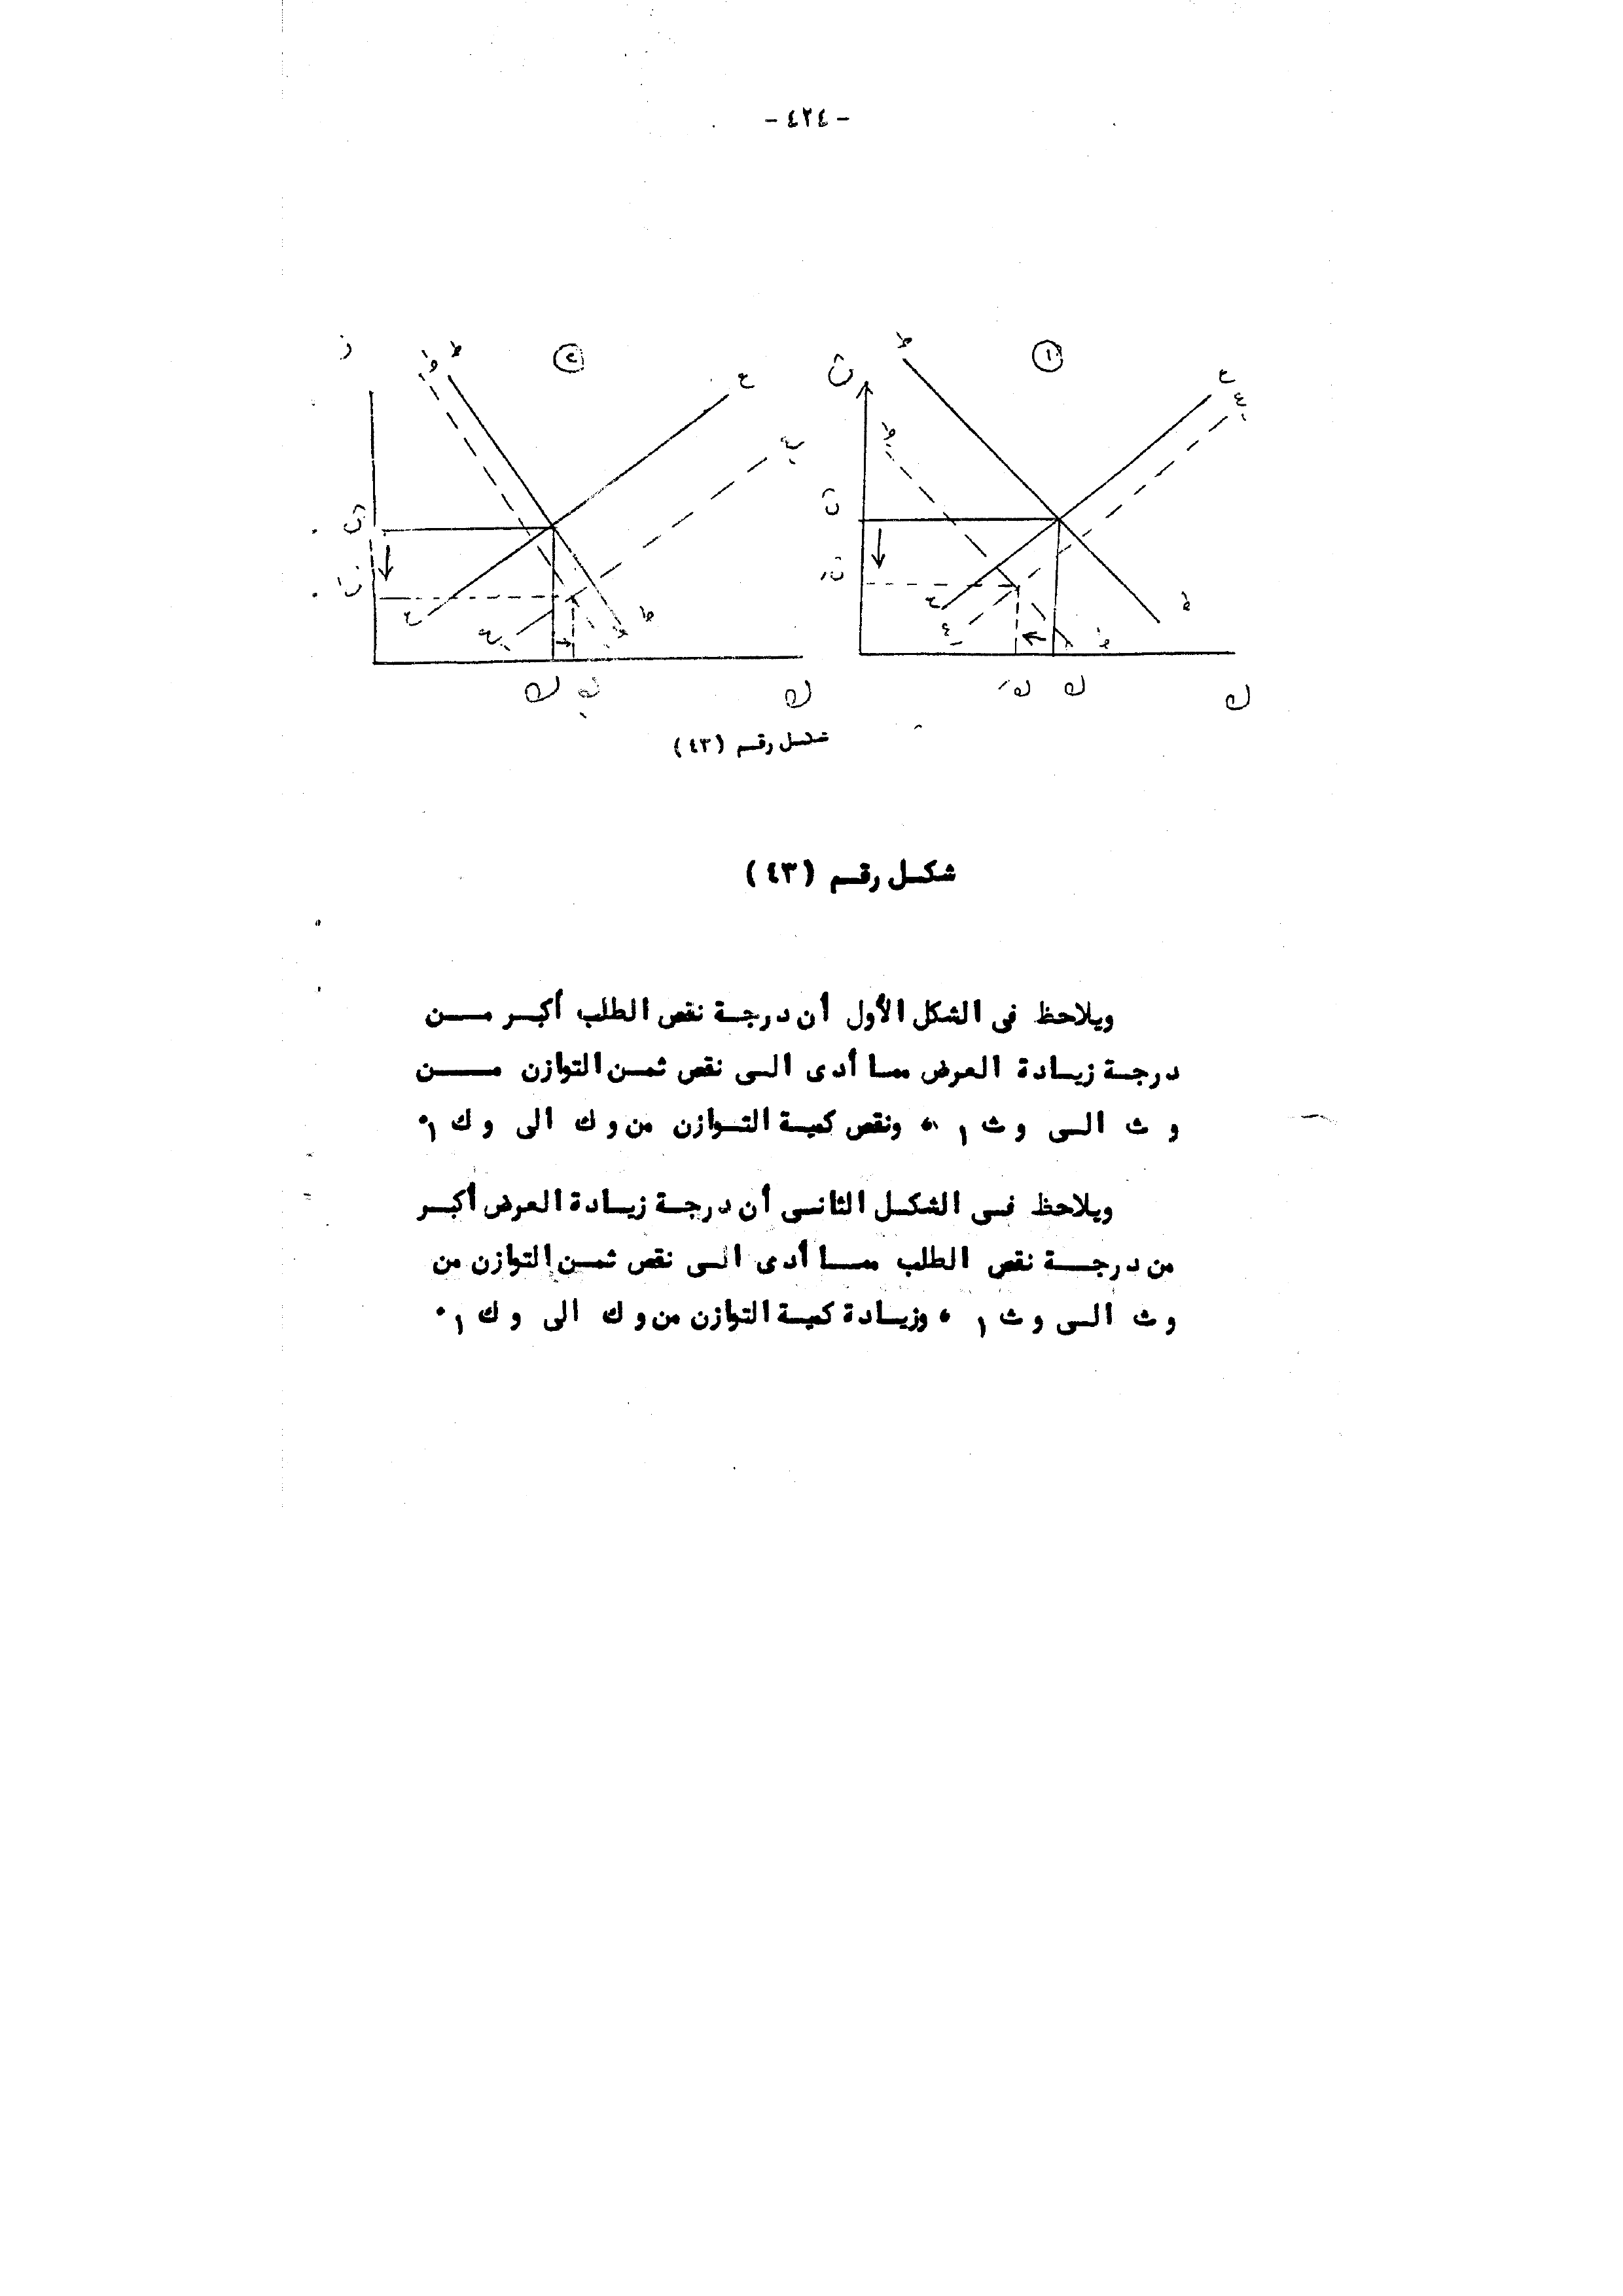 - ٤٢٤ -
① ②
ث ط ع ع١
ط ط١ ع ع١
ث ط١
ث ث
ث١ ث١
ع ع١ ط ط١
ع ع١ ط
ك١ ك ك
ك ك١ ك
شكل رقم (٤٣)
شكل رقم (٤٣)
ويلاحظ فى الشكل الأول أن درجة نقص الطلب أكبر من
درجة زيادة العرض مما أدى الى نقص ثمن التوازن من
و ث الى و ث ١ ، ونقص كمية التوازن من و ك الى و ك ١ .
ويلاحظ فى الشكل الثانى أن درجة زيادة العرض أكبر
من درجة نقص الطلب مما أدى الى نقص ثمن التوازن من
و ث الى و ث ١ ، وزيادة كمية التوازن من و ك الى و ك ١ .